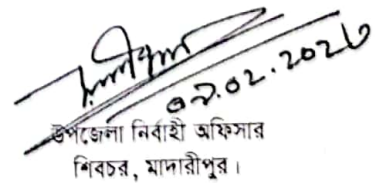 ০৯.০২.২০২৬
উপজেলা নির্বাহী অফিসার
শিবচর, মাদারীপুর।